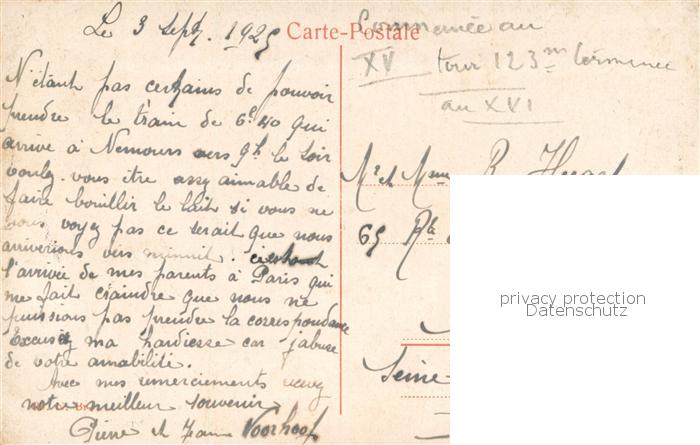 Le 3 Sept. 1925
Carte-Postale
Commencée au
XV tour 123m terminée
au XVI
N'étant pas certains de pouvoir
prendre le train de 6h40 qui
arrive à Nemours vers 9h le soir
voulez-vous être assez aimable de
faire bouillir le lait si vous ne
nous voyez pas ce serait que nous
arriverions vers minuit.
l'arrivée de mes parents à Paris qui
me fait craindre que nous ne
puissions pas prendre la correspondance
Excusez ma hardiesse car j'abuse
de votre amabilité.
Avec mes remerciements recevez
notre meilleur souvenir
Pierre et Jeanne Voorhoof
Mr et Mme R.
65 R
Seine
privacy protection
Datenschutz